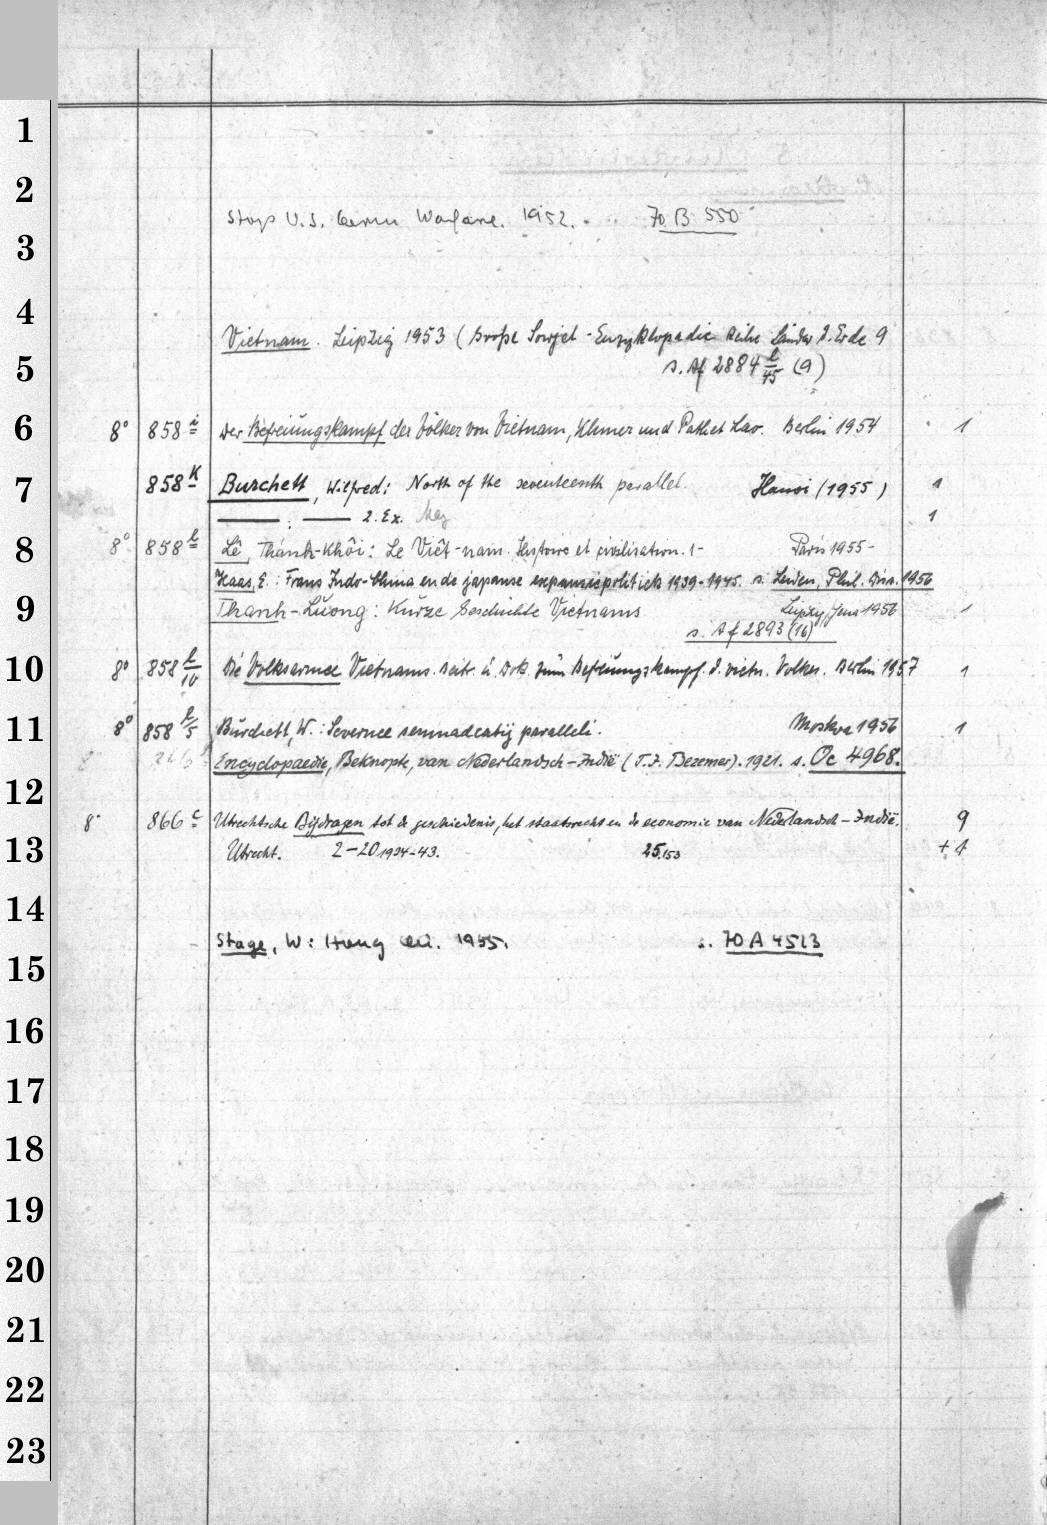 1
2
Stop U.S. Germ Warfare. 1952. 70 B 550
3
4
Vietnam. Leipzig 1953 (Große Sowjet-Enzyklopädie Reihe Länder d. Erde 9
5 s. Af 2884 l/45 (9)
6 8° 858 i Der Befreiungskampf der Völker von Vietnam, Khmer und Pathet Lao. Berlin 1954 1
7 858 k Burchett, Wilfred: North of the seventeenth parallel. Hanoi (1955) 1
— : — 2. Ex. 1
8 8° 858 l Lê, Thánh-Khôi: Le Viêt-nam. Histoire et civilisation. 1- Paris 1955-
Haas, E.: Frans Indo-China en de japanse expansiepolitiek 1939-1945. s. Leiden, Phil. Diss. 1956
9 Thanh-Lúong: Kurze Geschichte Vietnams Leipzig, Jena 1956 1
s. Af 2893 (16)
10 8° 858 l/10 Die Volksarmee Vietnams. Beitr. u. Dok. zum Befreiungskampf d. vietn. Volkes. Berlin 1957 1
11 8° 858 l/5 Burchett, W.: Severnee semnadcatij paralleli. Moskva 1956 1
Encyclopaedie, Beknopte, van Nederlandsch-Indië (T.J. Bezemer). 1921. s. Oc 4968.
12
8° 866 c Utrechtsche Bijdragen tot de geschiedenis, het staatsrecht en de economie van Nederlandsch-Indië. 9
13 Utrecht. 2-20 1934-43. 25.153 + 1
14
Stage, W: 1955. s. 70 A 4513
15
16
17
18
19
20
21
22
23